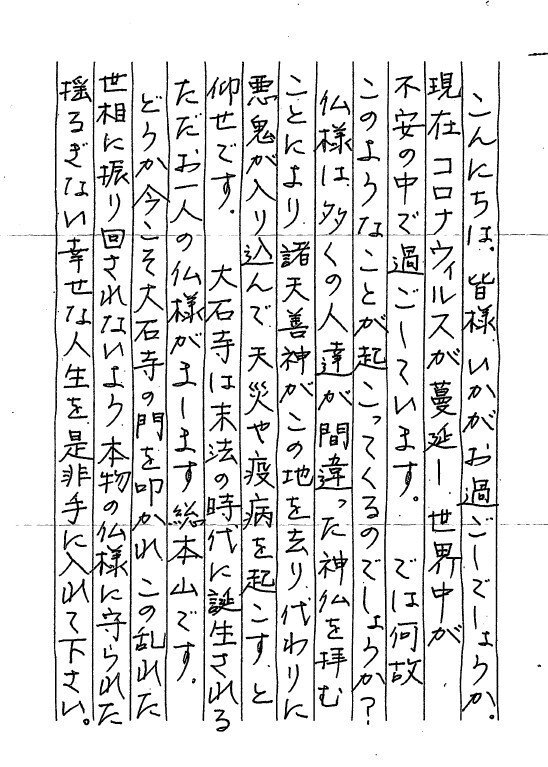 こんにちは、皆様 いかがお過ごしでしょうか。
現在 コロナウィルスが蔓延し 世界中が
不安の中で過ごしています。 では何故
このようなことが起こってくるのでしょうか?
仏様は、多くの人達が間違った神仏を拝む
ことにより 諸天善神がこの地を去り 代わりに
悪鬼が入り込んで 天災や疫病を起こすと
仰せです。 大石寺は末法の時代に誕生される
ただお一人の仏様がまします総本山です。
どうか今こそ大石寺の門を叩かれ この乱れた
世相に振り回されないよう 本物の仏様に守られた
揺るぎない幸せな人生を是非手に入れて下さい。